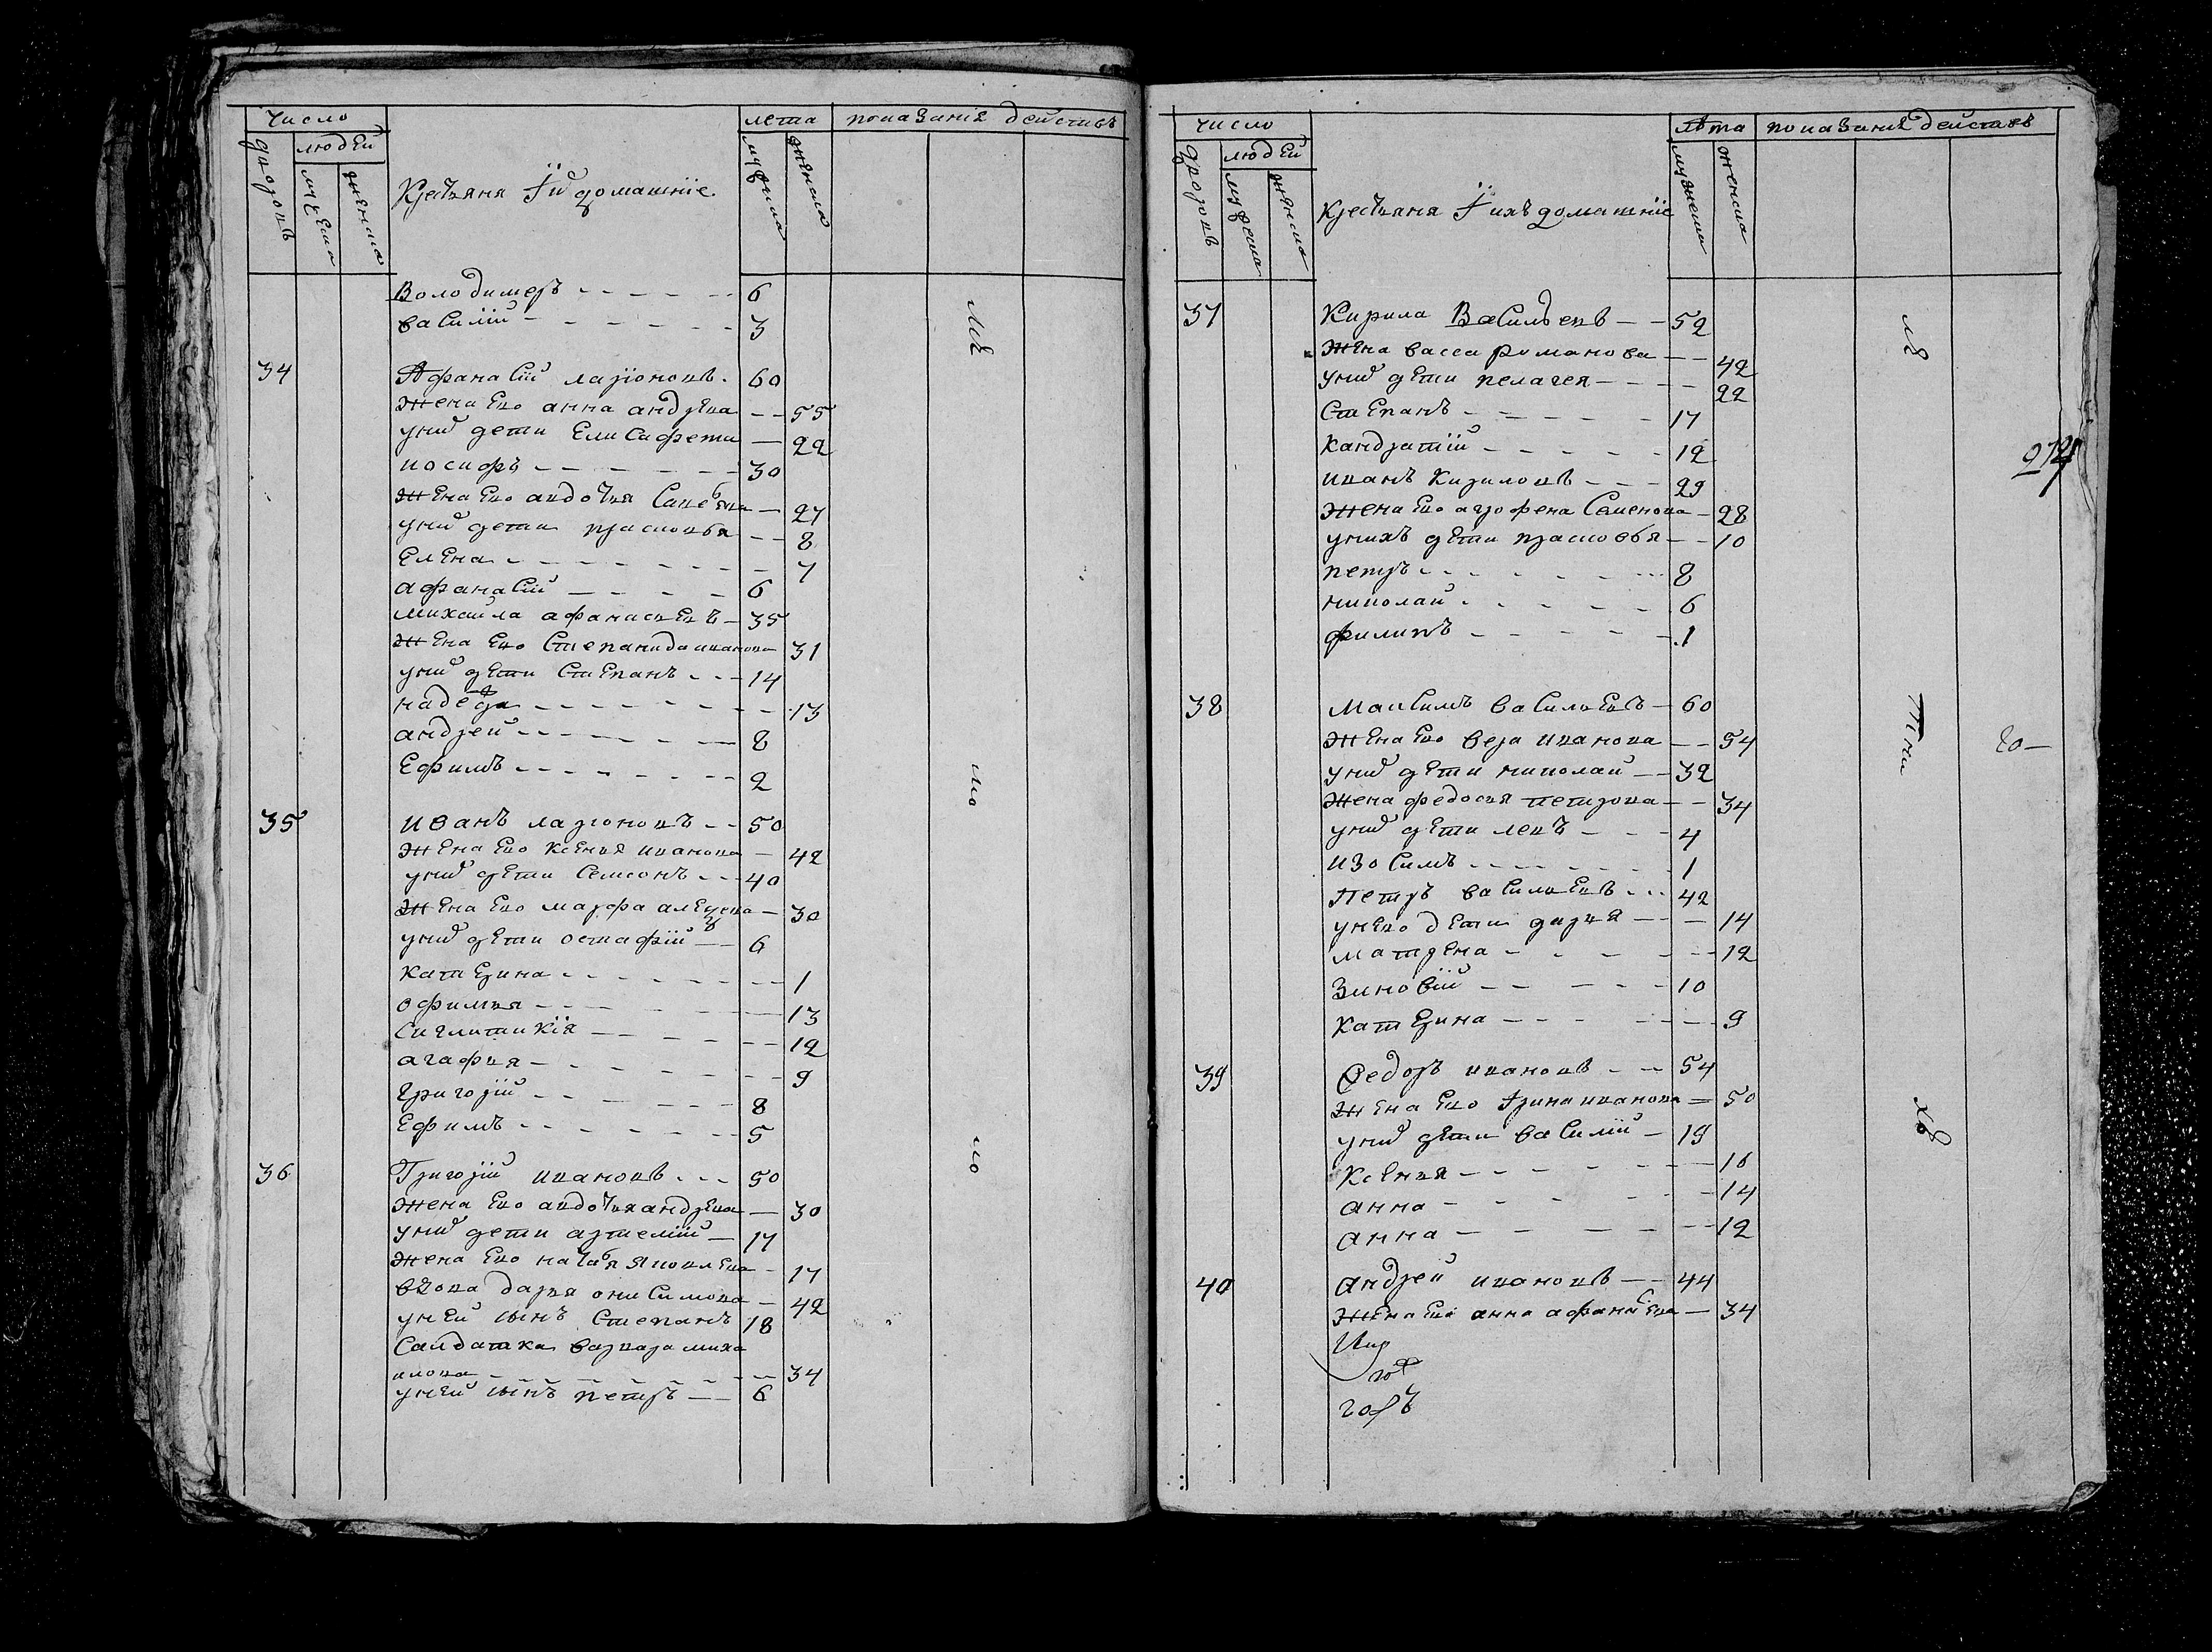 число
людей
дворовъ
мужеска
женска
Крестьяня Iих домашнiе
лета
мужеска
женска
показанiя действъ
Володимеръ 6
василiй 3
34 Афанасiй ларiоновъ 60
Жена Ево анна андрева 55
уних дети Елисафети 22
иосифъ 30
Жена Ево авдотья Савельева 27
уних дети прасковья 8
Елена 7
афанасiй 6
михайла афанасьевъ 35
Жена Ево Степанида иванова 31
уних дети Степанъ 14
надежда 13
андрей 8
Ефимъ 2
35 иванъ ларионовъ 50
Жена Ево Ксенья иванова 42
уних дети Семсонъ 40
Жена Ево марфа
30
уних дети остафiй 6
катерина 1
офимья 13
Сиглитикiя 12
агафья 9
Григорiй 8
Ефимъ 5
36 Григорiй ивановъ 50
Жена Ево авдотья андрева 30
уних дети артемiй 17
Жена Ево наталья яковлева 17
вдова дарья онисимова 42
уней сынъ Степанъ 18
Салдатка варвара миха
илова 34
уней сынъ петръ 6
число
людей
дворовъ
мужеска
женска
Крестьяня Iихъ домашнiе
лѣта
мужеска
женска
показанiя действъ
37 Кирила Васильевъ 52
Жена васса романова 42
уних дети пелагея 22
Степанъ 17
Кандратiй 12
иванъ Кириловъ 29
Жена Ево агрофена Семенова 28
унихъ дети прасковья 10
петръ 8
николай 6
филипъ 1
274
38 Максимъ васильевъ 60
Жена Ево вера иванова 54
уних дети николай 32
Жена федосья петрова 34
уних дети левъ 4
изосимъ 1
Петръ васильевъ 42
унево дети дарья 14
матрена 12
Зиновiй 10
Катерина 9
39 Федоръ ивановъ 54
Жена Ево Iрина иванова 50
уних дети василiй 19
Ксенья 16
анна 14
анна 12
40 андрей ивановъ 44
Жена Ево анна афанасьева 34